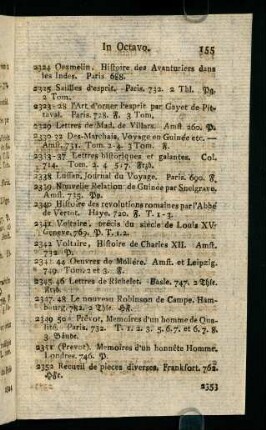 In Octavo. 155
2324 Oexmelin. Histoire des Avanturiers dans
les Indes. Paris. 688.
2325 Saillies d'esprit. Paris. 732. 2 Thl. Pg.
2 Tom.
2326-28 l'Art d'orner l'esprit par Gayet de Pit-
taval. Paris. 728. 3 Tom.
2329 Lettres de Mad. de Villars. Amst. 260. P.
2330-32 Des-Marchais, Voyage en Guinée etc.
Amst. 731. Tom. 2-4. 3 Tom.
2333-37 Lettres historiques et galantes. Col.
714. Tom. 2. 4. 5. 17.
2338 Lussan, Journal du Voyage. Paris. 690.
2339 Nouvelle Relation de Guinée par Snelgrave.
Amst. 735. Pg.
2340 Histoire des revolutions romaines par l'Abbé
de Vertot. Haye. 720. T. 1-3.
2341 Voltaire, précis du siecle de Louis XV.
Geneve. 769. P. T. 1. 2.
2342 Voltaire, Histoire de Charles XII. Amst.
732. P.
2343 44 Oeuvres de Moliére. Amst. et Leipzig.
749. Tom. 2 et 3.
2345 46 Lettres de Richelet. Basle. 747. 2 Thle.
2347. 48 Le nouveau Robinson de Campe. Ham-
bourg. 782. 2 Thle.
2349 50 Prévot, Memoires d'un homme de Qua-
lité. Paris. 732. T. 1. 2. 3. 5. 6. 7. et 6. 7. 8.
3 Bände.
2351 (Prevot). Memoires d'un honnête Homme.
Londres. 746. P.
2352 Recueil de pieces diverses. Frankfort. 762.
2353